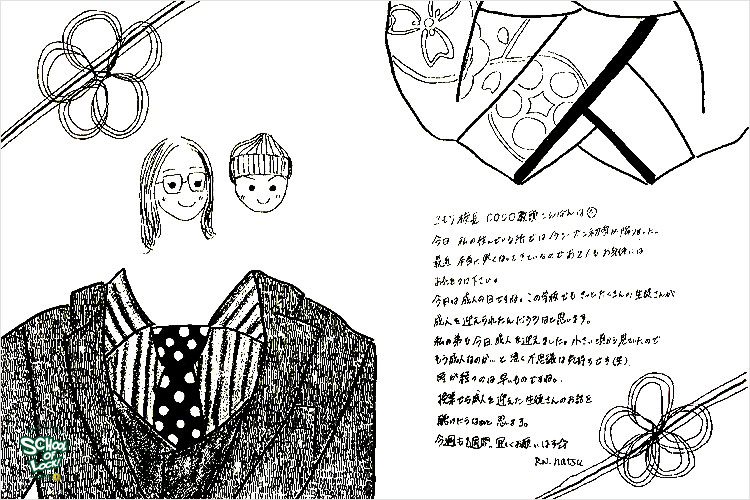 SCHOOL OF LOCK!
こもり校長 COCO教頭 こんばんは
今日 私の住んでいる街では
最近 本当に寒くなってきているのでお2人もお気をつけ
下さい。
今日は成人の日ですね。この学校でもきっとたくさんの生徒さんが
成人を迎えられたんだろうなと思います。
私の弟も今日、成人を迎えました。小さい頃から見ていたので
もう成人なのか…と 凄く不思議な気持ちです(笑)
時が経つのは早いものですね。
授業でも成人を迎えた生徒さんのお話を
聴けたらなぁと 思います。
今週も1週間、宜しくお願いします
RN. natsu